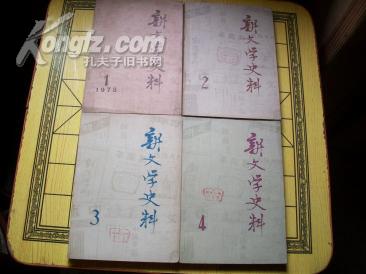 Kongfz.com
孔夫子旧书网
新文学史料
1
1978
新文学史料
2
新文学史料
3
新文学史料
4